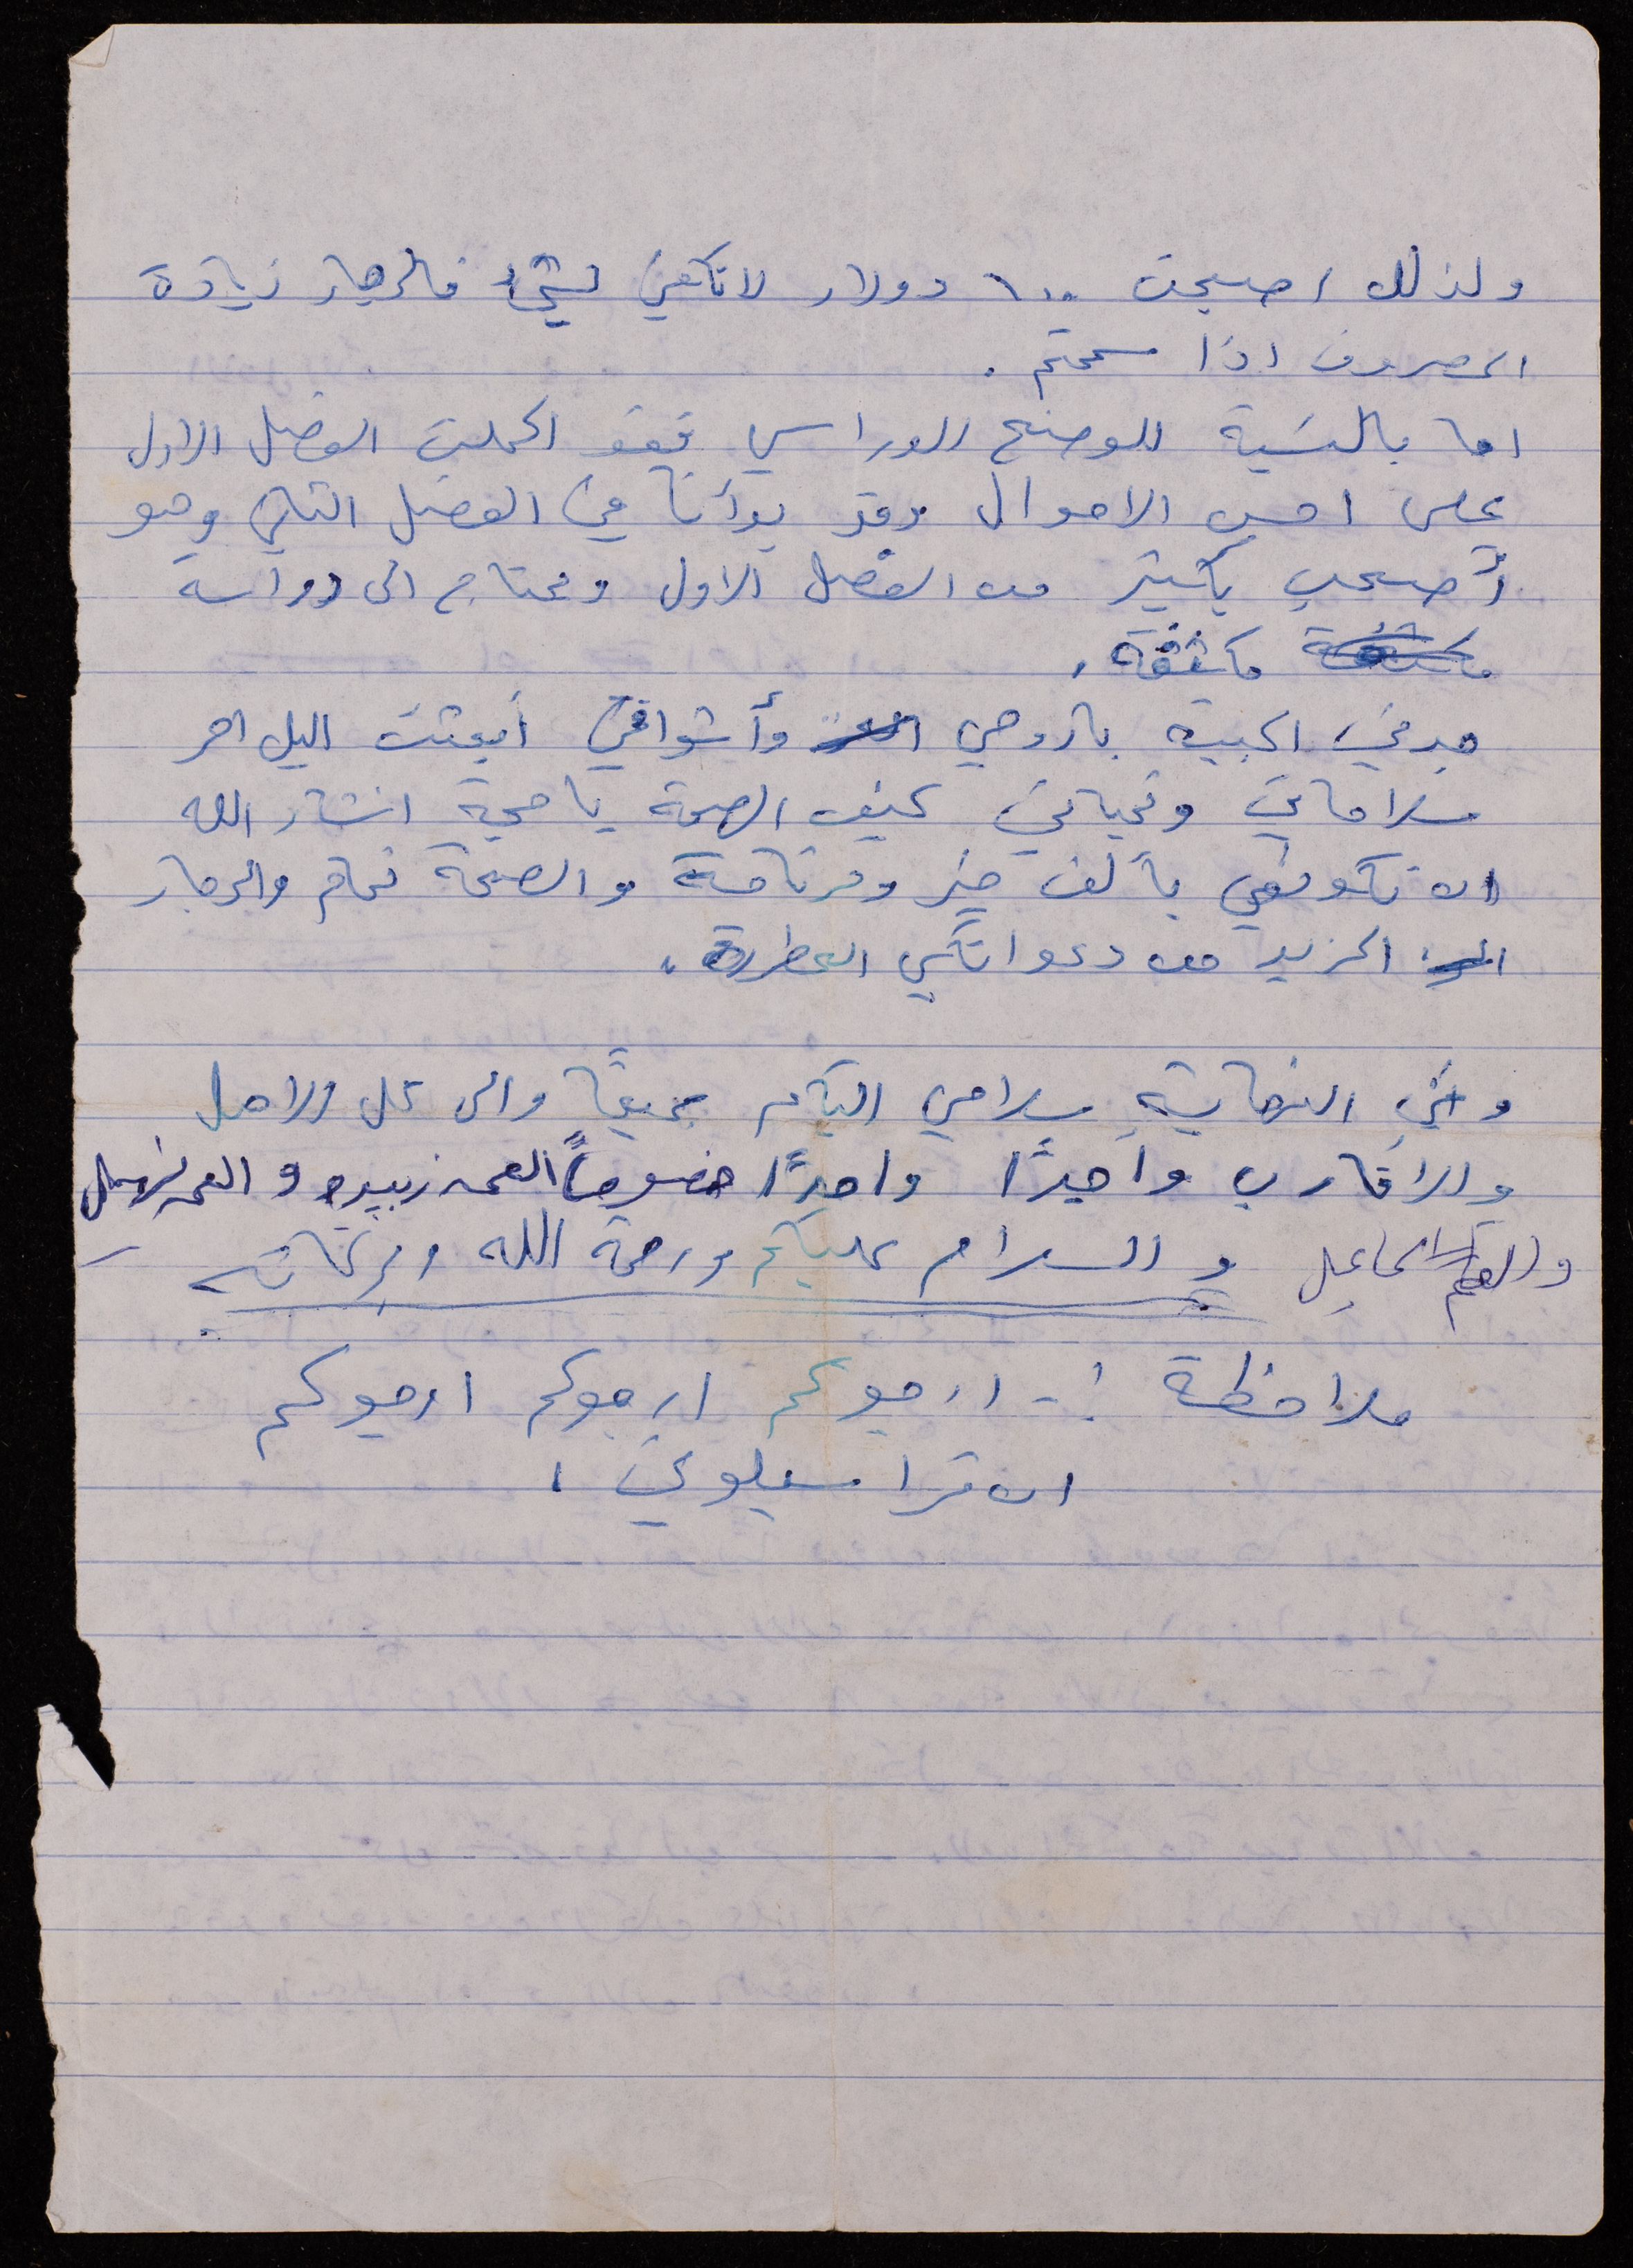 ولذلك اصبحت ٦٠٠ دولار لا تكفي لشيء فالرجاء زيادة
المصروف اذا سمحتم .
اما بالنسبة للوضع الدراسي فقد اكملت الفصل الاول
على احسن الاحوال وقد بدأنا في الفصل الثاني وهو
أصعب بكثير من الفصل الاول ونحتاج الى دراسة
مكثفة .
جدتي الحبيبة بأروحي وأشواقي أبعثت اليك احر
سلاماتي وتحياتي كيف الصحة يا حجة انشاء الله
ان تكوني بألف خير والصحة تمام والرجاء
المزيد من دعواتكي العطرة .
وفي النهاية سلامي اليكم جميعًا والى كل الاهل
والاقارب واحدًا واحدًا خصوصاً العمه زبيده و العمه
والعم اسماعيل والسلام عليكم ورحمة الله وبركاته
ملاحظة :- ارجوكم ارجوكم ارجوكم
ان تراسلوني .